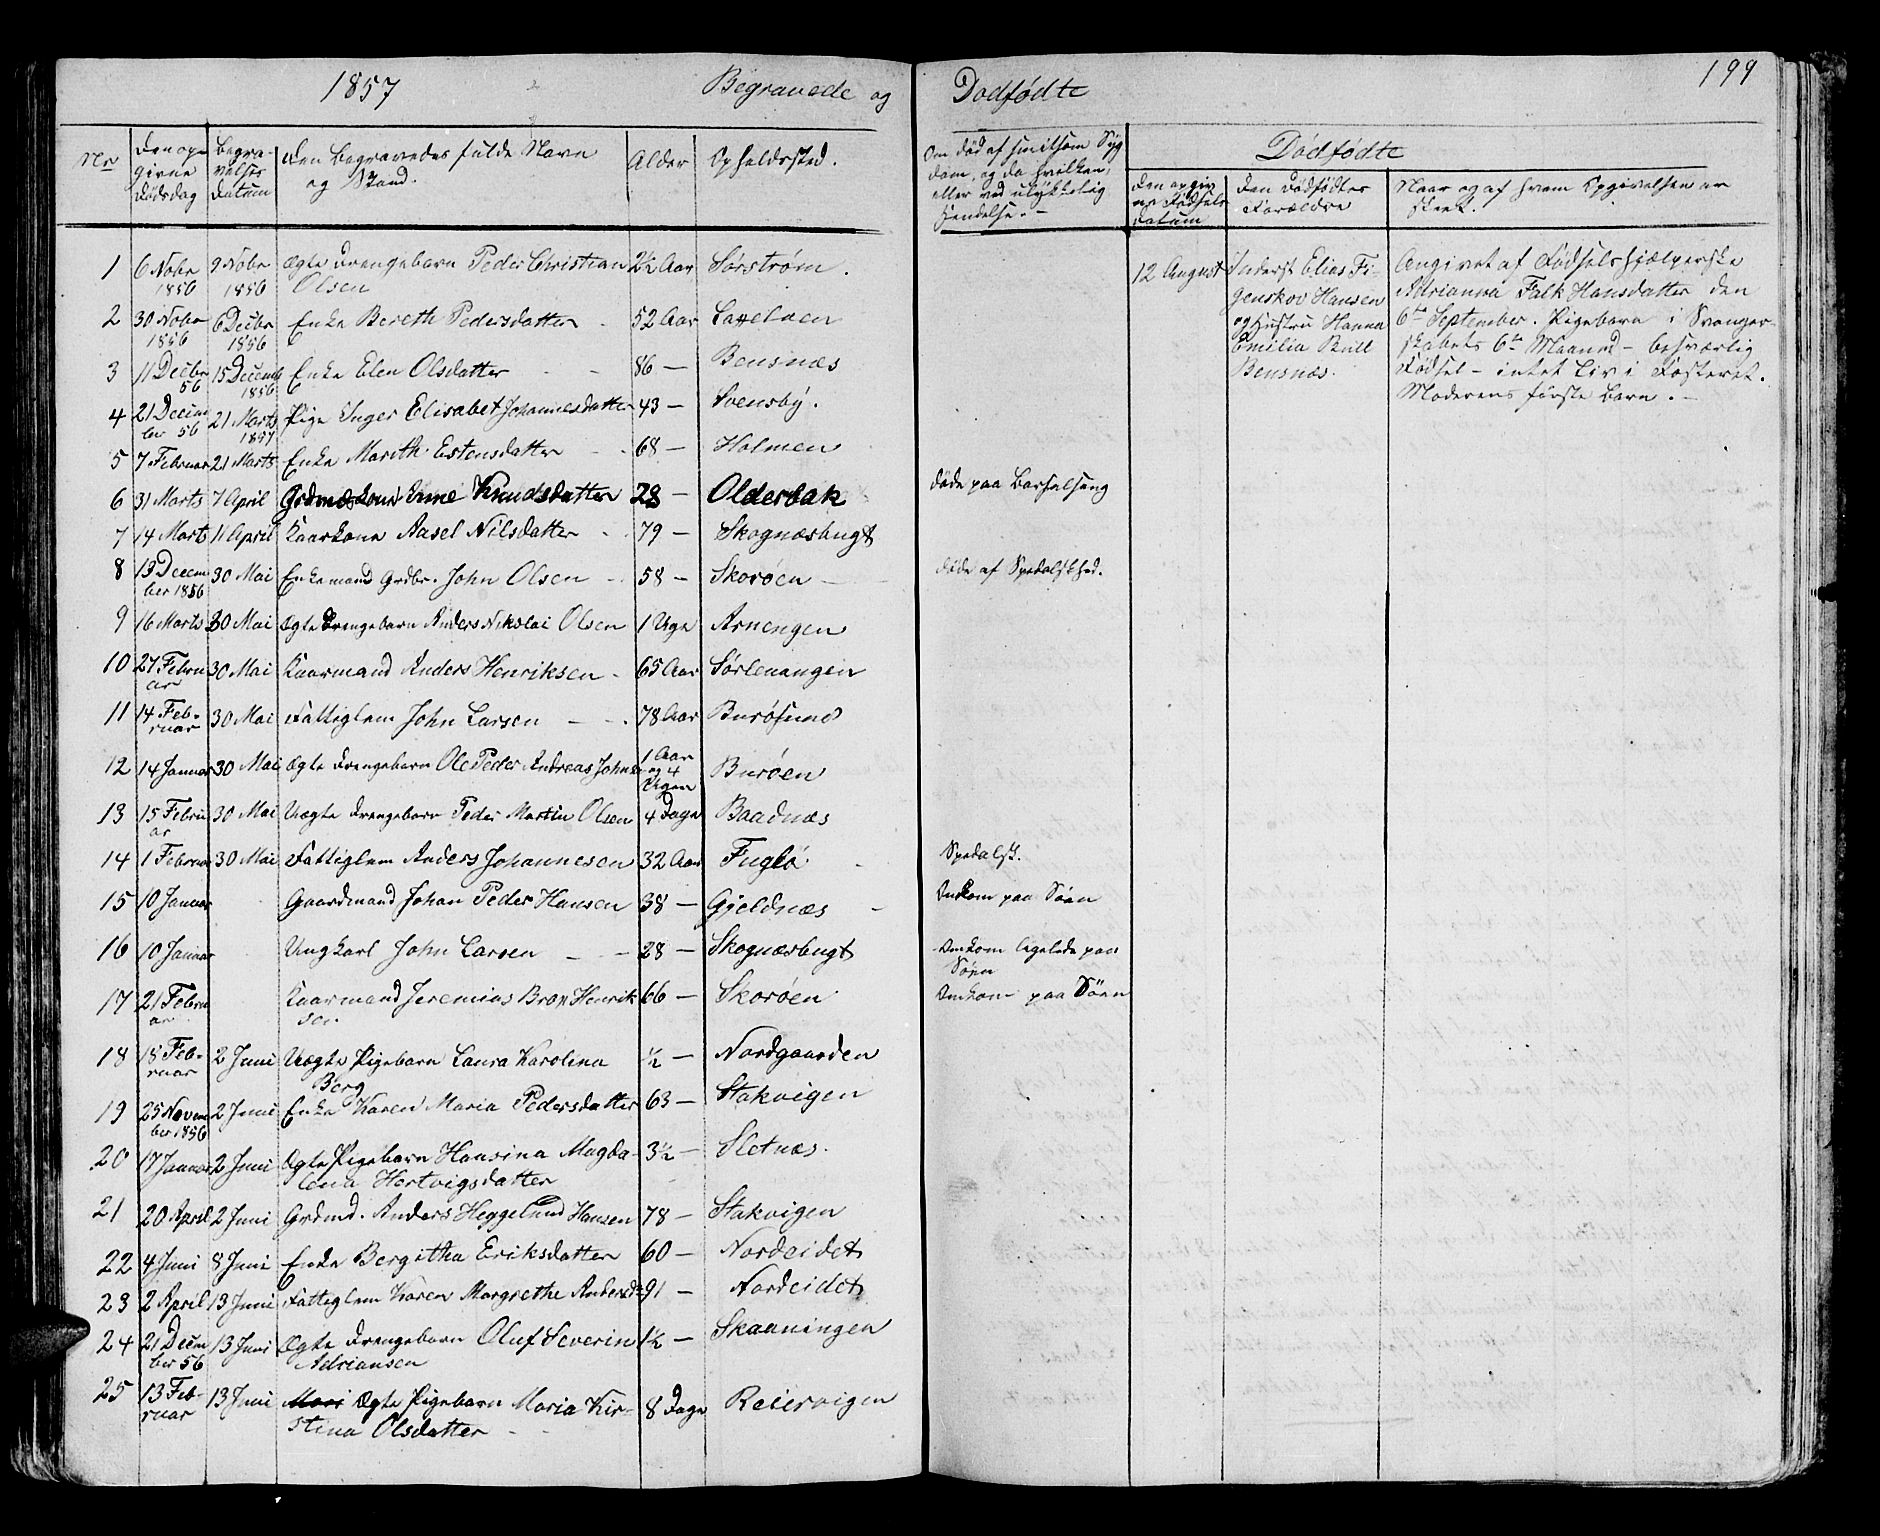 1857 Begravede og Dødfødte 199
Nr Den opgivne Dødsdag Begravelses Datum Den Begravedes fulde Navn og Stand. Alder Opholdssted. Om død af smitsom Sygdom, og da hvilken, eller ved ulykkelig Hendelse.-
Dødfødte
Den opgivne Fødsels Datum Den Dødfødtes Forældre Naar og af hvem Opgivelsen er skeet.
1 6 Nobr 1856 9 Nobr 1856 Ægte Drengebarn Peder Christian Olsen 2½ Aar Sørstrøm.
2 30 Nobr 1856 6 Decbr 1856 Enke Bereth Pedersdatter 52 Aar
3 11 Decbr 56 15 Decemb 1856 Enke Elen Olsdatter - - 86 - Bensnæs
4 21 December 56 21 Marts 1857 Pige Inger Elisabet Johannesdatter 43 - Svensby.
5 7 Februar 21 Marts Enke Marith Estensdatter 68 - Holmen
6 31 Marts 7 April Knudsdatter 28 - Olderbak døde paa Barselseng
7 14 Marts 11 April Kaarkone Aasel Nilsdatter - 79 - Skognæsbugt
8 13 December 1856 30 Mai Enkemand Grdbr. John Olsen - 58 - Skorøen - døde af Spedalskhed.
9 16 Marts 30 Mai Ægte Drengebarn Anders Nikolai Olsen 1 Uge Arnengen
10 27 Februar 30 Mai Kaarmand Anders Henriksen - 65 Aar Sørlenangen
11 14 Februar 30 Mai Fattiglem John Larsen - - 78 Aar Burøsund
12 14 Januar 30 Mai Ægte Drengebarn Ole Peder Andreas Johns 1 Aar og 4 Uger Burøen
13 15 Februar 30 Mai Uægte Drengebarn Peder Martin Olsen 4 Dage Baadnæs
14 1 Februar 30 Mai Fattiglem Anders Johannesen 32 Aar Fuglø - Spedalsk.
15 10 Januar Gaardmand Johan Peder Hansen 38 - Gjeldnæs - Omkom paa Søen
16 10 Januar Ungkarl John Larsen - - 28 - Skognæsbugt Omkom ligeledes paa Søen
17 21 Februar Kaarmand Jeremias Henriksen 66 - Skorøen Omkom paa Søen
18 18 Februar 2 Juni Uægte Pigebarn Laura Karolina Berg ½ - Nordgaarden
19 25 November 1856 2 Juni Enke Karen Maria Pedersdatter 63 - Stakvigen
20 17 Januar 2 Juni Ægte Pigebarn Hansina Magdalena Hertvigsdatter 3½ - Sletnæs.
21 20 April 2 Juni Grdmd. Anders Heggelund Hansen 78 - Stakvigen
22 4 Juni 8 Juni Enke Bergitha Eriksdatter 60 - Nordeidet
23 2 April 13 Juni Fattiglem Karen Margrethe Andersdt 91 - Nordeidet
24 21 December 56 13 Juni Ægte Drengebarn Oluf Severin Adriansen 1½ - Skaaningen
25 13 Februar 13 Juni Ægte Pigebarn Maria Kirstina Olsdatter - 8 Dage Reiervigen
12 August Inderst Elias Figenskov Hansen og Hustru Hanna Emilia Bull Bensnæs.
Angivet af Fødselshjælperske
Adrianna Falk Hansdatter den
6te September. Pigebarn i Svanger-
skabets 6te Maaned - besværlig
Fødsel - intet Liv i Fosteret.
Moderens første Barn. -